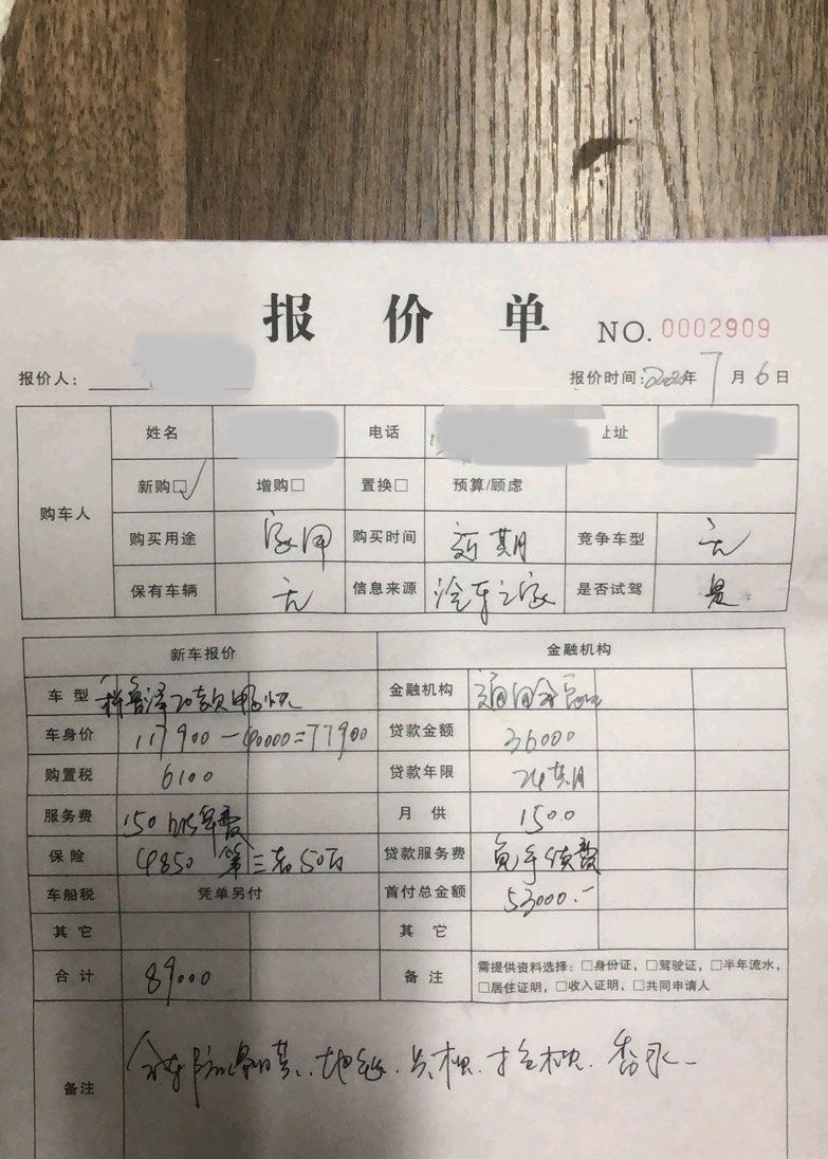 报价单 NO.0002909
报价人: 报价时间:2020年7月6日
购车人
姓名 电话 址址
新购□✓ 增购□ 置换□ 预算/顾虑
购买用途 家用 购买时间 近期 竞争车型 无
保有车辆 无 信息来源 汽车之家 是否试驾 是
新车报价 金融机构
车型 科鲁泽20款 金融机构
车身价 117900-40000=77900 贷款金额 36000
购置税 6100 贷款年限 24期
服务费 150 贷 月供 1500
保险 4850 第三者50万 贷款服务费 免手续费
车船税 凭单另付 首付总金额 53000.-
其它 其它
合计 89000 备注 需提供资料选择:□身份证,□驾驶证,□半年流水,
□居住证明,□收入证明,□共同申请人
备注 全车防爆膜、地毯、香水